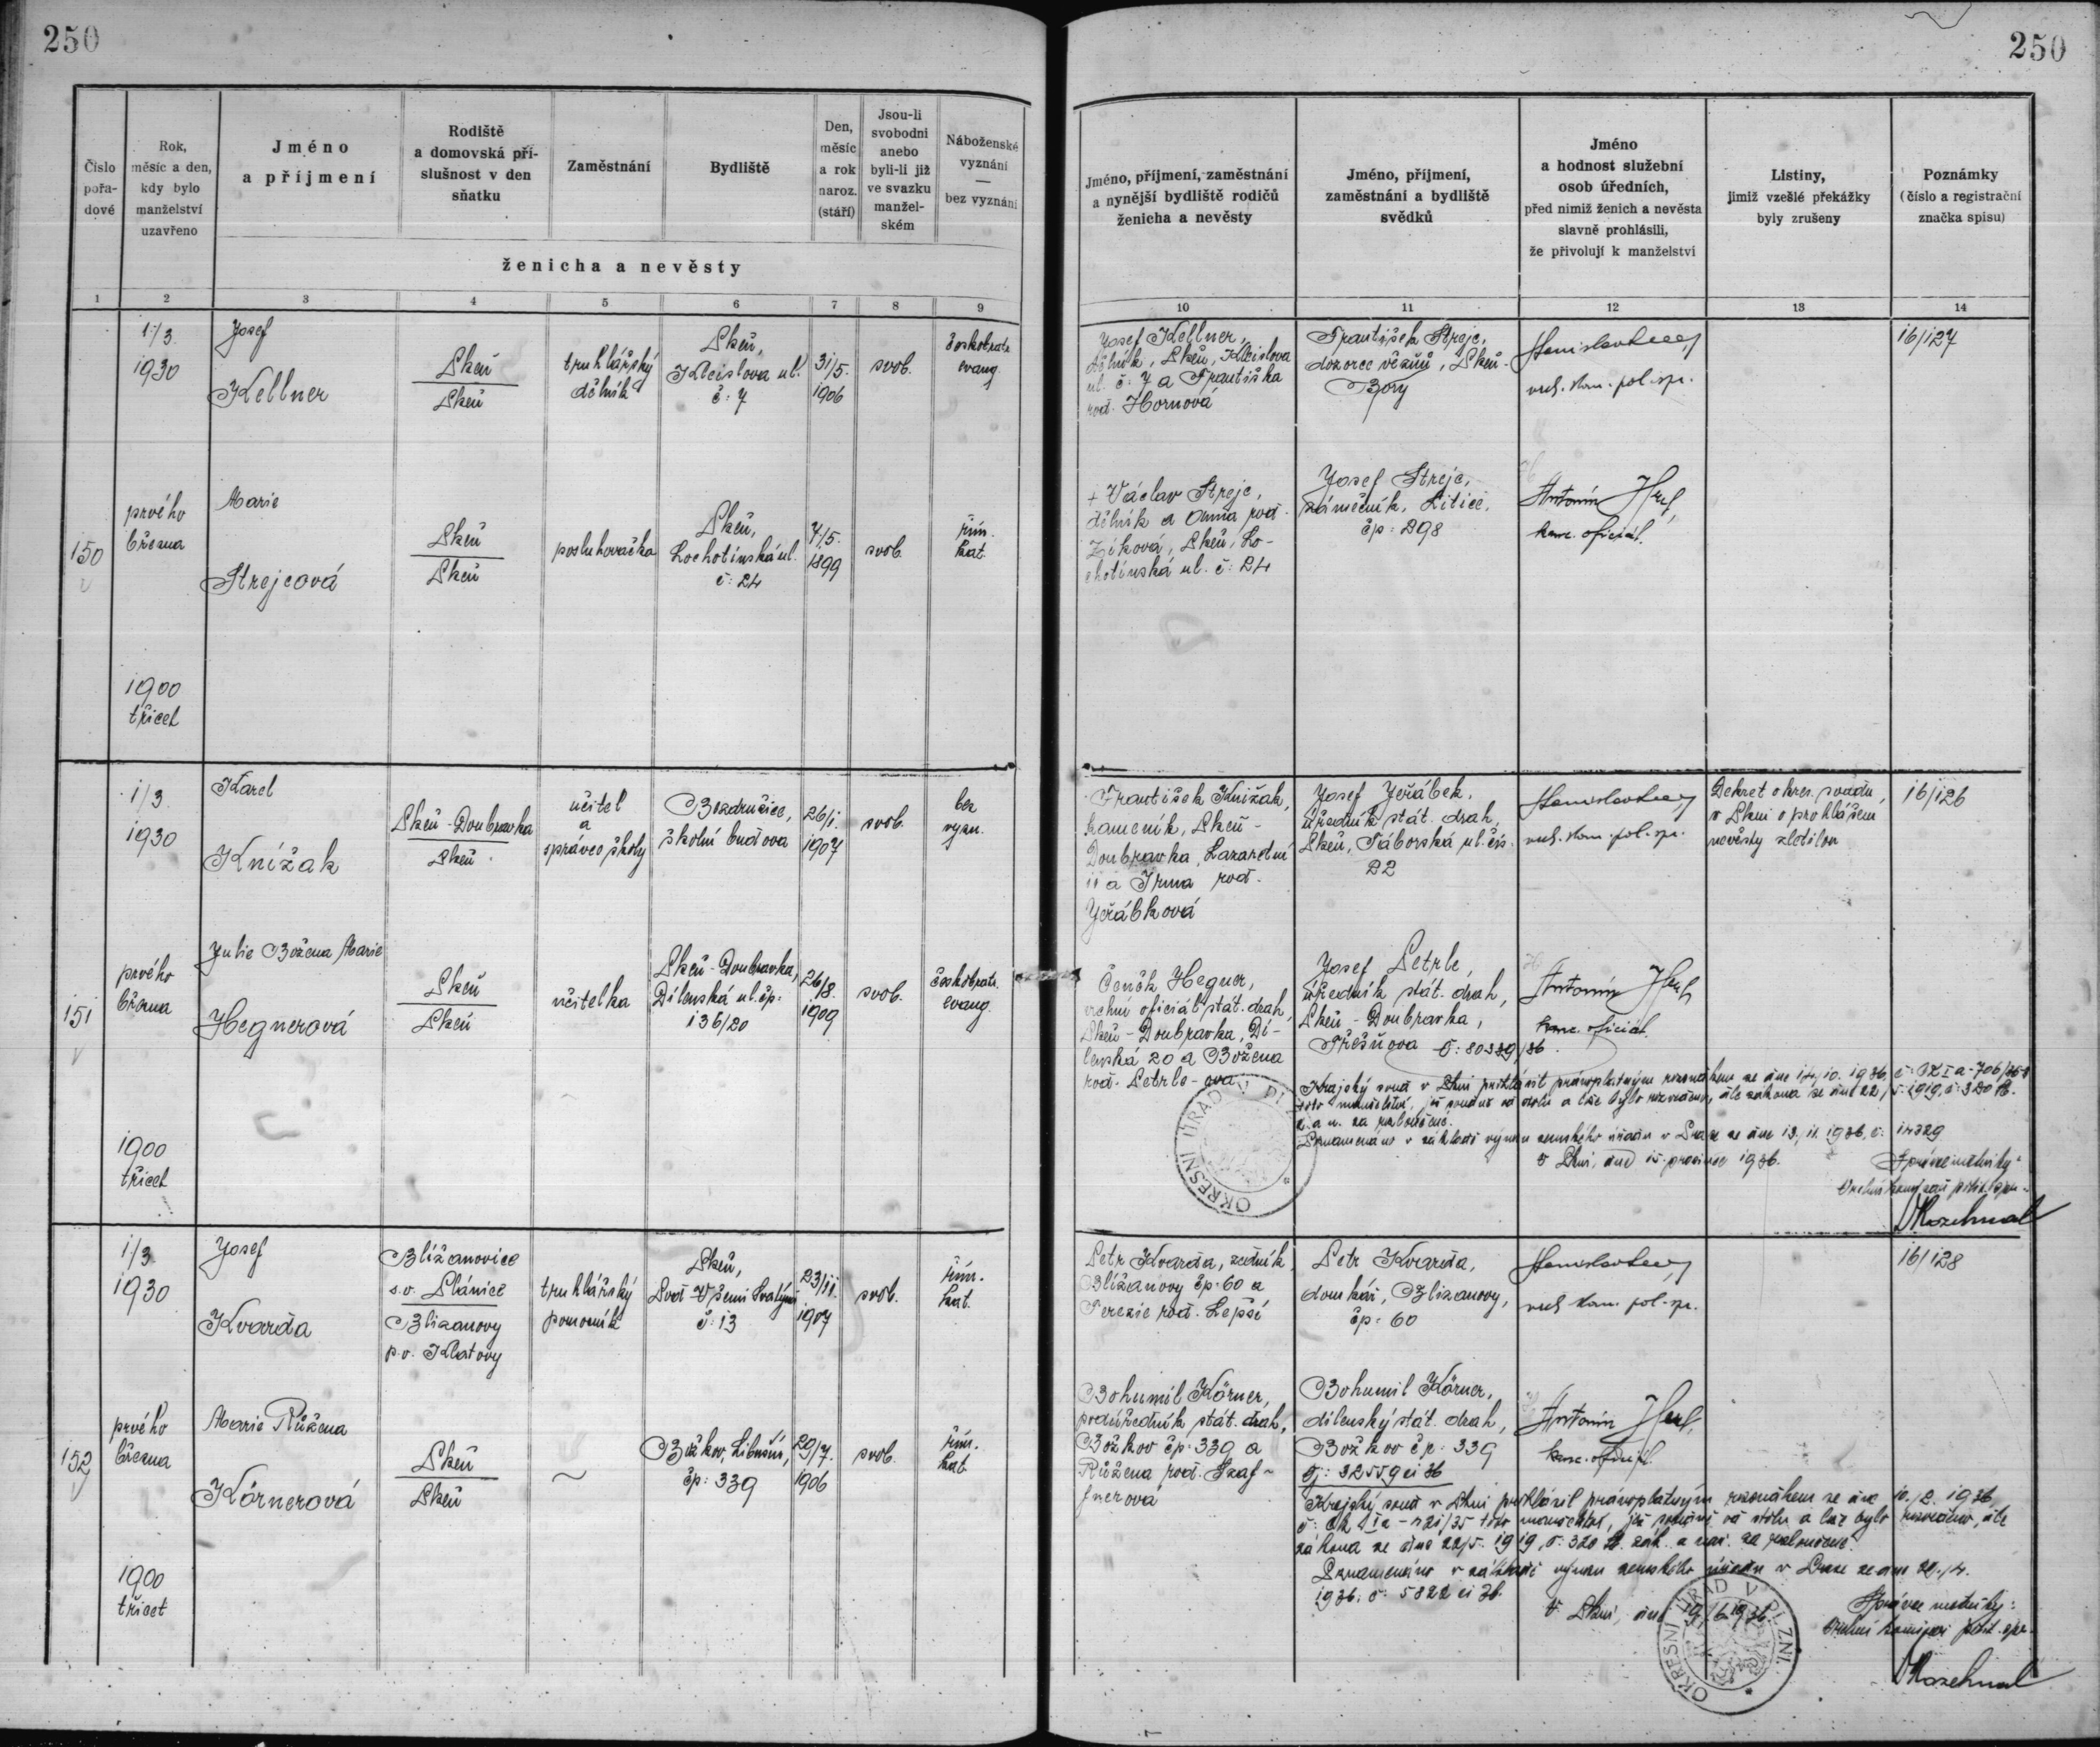 250
250
Číslo
pořa-
dové
Rok,
měsíc a den,
kdy bylo
manželství
uzavřeno
Jméno
a příjmení
Rodiště
a domovská pří-
slušnost v den
sňatku
Zaměstnání
Bydliště
Den,
měsíc
a rok
naroz.
(stáří)
Jsou-li
svobodni
anebo
byli-li již
ve svazku
manžel-
ském
Náboženské
vyznání
—
bez vyznání
ženicha a nevěsty
Jméno, příjmení, zaměstnání
a nynější bydliště rodičů
ženicha a nevěsty
Jméno, příjmení,
zaměstnání a bydliště
svědků
Jméno
a hodnost služební
osob úředních,
před nimiž ženich a nevěsta
slavně prohlásili,
že přivolují k manželství
Listiny,
jimiž vzešlé překážky
byly zrušeny
Poznámky
(číslo a registrační
značka spisu)
1 2 3 4 5 6 7 8 9
10 11 12 13 14
150
1/3.
1930
prvého
března
1900
třicet
Josef
Kellner
Plzeň
Plzeň
truhlářský
dělník
Plzeň,
Kleislova ul.
č: 7
31/5.
1906
svob.
českobratr.
evang.
Josef Kellner,
dělník, Plzeň, Kleislova
ul. č: 7 a Františka
roz. Hornová
František Strejc,
dozorce vězňů, Plzeň -
Bory
vrch. kom. pol. spr.
16/127
Marie
Strejcová
Plzeň
Plzeň
posluhovačka
Plzeň,
Lochotínská ul.
č: 24
7/5.
1899
svob.
řím.
kat.
+ Václav Strejc,
dělník a Anna roz.
Zíková, Plzeň, Lo-
chotínská ul. č: 24
Josef Strejc,
zámečník, Litice,
čp: 298
Antonín
kanc. oficiál.
151
1/3
1930
prvého
března
1900
třicet
Karel
Knížak
Plzeň-Doubravka
Plzeň.
učitel
a
správce školy
Bezdružice,
školní budova
26/1.
1907
svob.
bez
vyzn.
František Knížak,
kameník, Plzeň -
Doubravka, Lazaretní
11 a Irma roz.
Jeřábková
Josef Jeřábek,
úředník stát. drah,
Plzeň, Táborská ul. čís.
22
vrch. kom. pol. spr.
Dekret okres. soudu
v Plzni o prohlášení
nevěsty zletilou
16/126
Julie Božena Marie
Hegnerová
Plzeň
Plzeň
učitelka
Plzeň-Doubravka,
Dílenská ul. čp:
136/20
26/8.
1909
svob.
českobratr.
evang.
Čeněk Hegner,
vrchní oficiál stát. drah,
Plzeň - Doubravka, Dí-
lenská 20 a Božena
roz. Petrle-ova
Josef Petrle,
úředník stát. drah,
Plzeň - Doubravka,
Třešňova
Antonín
kanc. oficiál.
Krajský soud v Plzni prohlásil právoplatným rozsudkem ze dne 14./10. 1936, č:
toto manželství, jež soudně od stolu a lože bylo rozvedeno, dle zákona ze dne 22/5. 1919, č: 320 Sb.
z. a n. za rozloučené.
Poznamenáno v základě výnosu zemského úřadu v Praze ze dne 13./11. 1936, č:
V Plzni, dne 15. prosince 1936.
Správce matriky:
Vrchní komisař polit. spr.
OKRESNÍ ÚŘAD V PLZNI
152
1/3
1930
prvého
března
1900
třicet
Josef
Kvarda
Bližanovice
s.o. Plánice
Blizanovy
p.o. Klatovy
truhlářský
pomocník
Plzeň,
Pod Všemi Svatými
č: 13
23/11.
1907
svob.
řím.
kat.
Petr Kvarda, zedník,
Bližanovy čp: 60 a
Terezie roz. Lepší
Petr Kvarda,
domkář, Blizanovy,
čp: 60
vrch. kom. pol. spr.
16/128
Marie Růžena
Körnerová
Plzeň
Plzeň
~
Božkov, Libušín,
čp: 339
29/7.
1906
svob.
řím.
kat.
Bohumil Körner,
podúředník stát. drah,
Božkov čp: 339 a
Růžena roz. Szaf-
fnerová
Bohumil Körner,
dílenský stát. drah,
Božkov čp: 339
Antonín
kanc. oficiál.
Krajský soud v Plzni prohlásil právoplatným rozsudkem ze dne 10./2. 1936,
toto manželství, jež soudně od stolu a lože bylo rozvedeno, dle
zákona ze dne 22/5. 1919, č: 320 Sb. zák. a nař. za rozloučené.
Poznamenáno v základě výnosu zemského úřadu v Praze ze dne 20./4.
1936, č:
V Plzni, dne 19/6. 1936.
Správce matriky:
Vrchní komisař polit. spr.
OKRESNÍ ÚŘAD V PLZNI